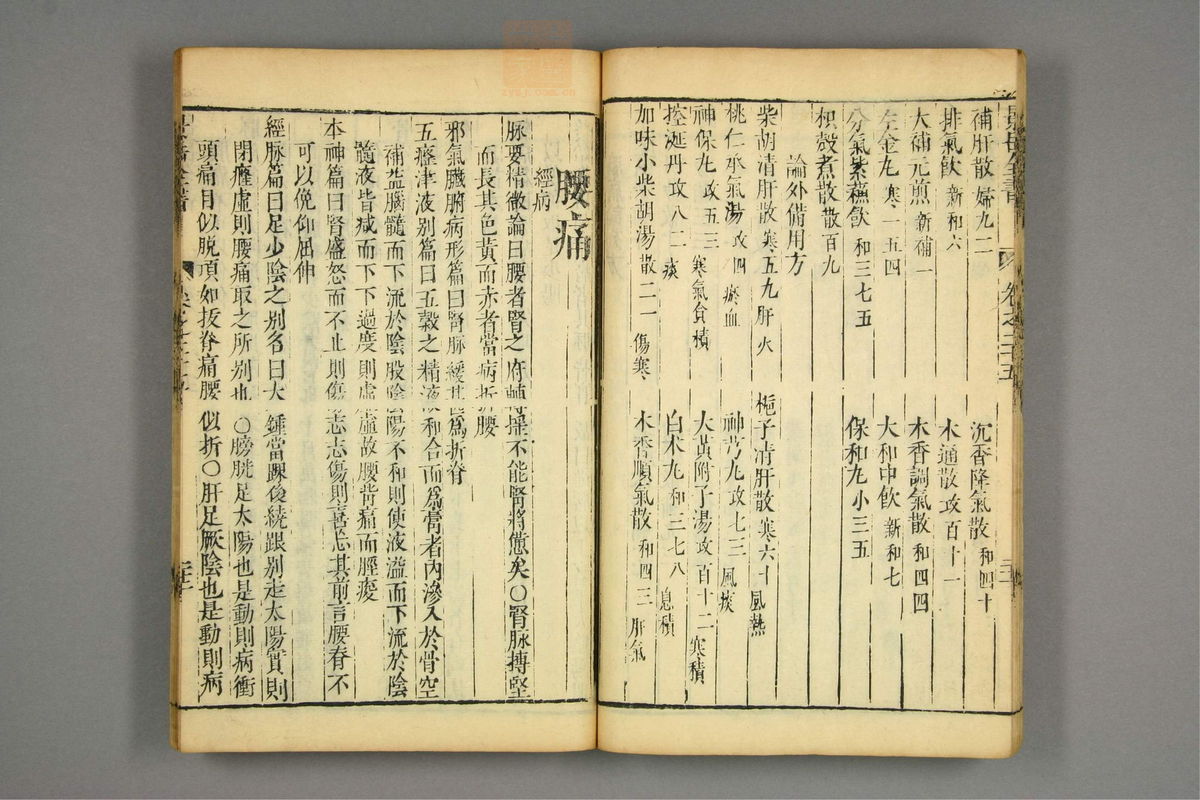 景岳全書 卷之二十五
補肝散 婦九二
沉香降氣散 和四十
排氣飲 新和六
木通散 攻百十一
大補元煎 新補一
木香調氣散 和四四
左金丸 寒一五四
大和中飲 新和七
分氣紫蘇飲 和三七五
保和丸 小三五
枳殼煮散 散百九
論外備用方
柴胡清肝散 寒五九 肝火
梔子清肝散 寒六十 風熱
桃仁承氣湯 攻四 瘀血
神芎丸 攻七三 風痰
神保丸 攻五三 寒氣食積
大黃附子湯 攻百十二 寒積
控涎丹 攻八二 痰
白朮丸 和三七八 息積
加味小柴胡湯 散二一 傷寒
木香順氣散 和四三 肝氣
腰痛
經病
脉要精微論曰腰者腎之府轉搖不能腎將憊矣〇腎脉搏堅
而長其色黃而赤者當病折腰
邪氣臟腑病形篇曰腎脉緩甚爲折脊
五癃津液別篇曰五穀之精液和合而爲膏者內滲入於骨空
補益腦髓而下流於陰股陰陽不和則使液溢而下流於陰
髓液皆減而下下過度則虛虛故腰背痛而脛痠
本神篇曰腎盛怒而不止則傷志志傷則喜忘其前言腰脊不
可以俛仰屈伸
經脉篇曰足少陰之別名曰大鍾當踝後繞跟別走太陽實則
閉癃虛則腰痛取之所別也〇膀胱足太陽也是動則病衝
頭痛目似脫項如拔脊痛腰似折〇肝足厥陰也是動則病
景岳全書
zysj.com.cn